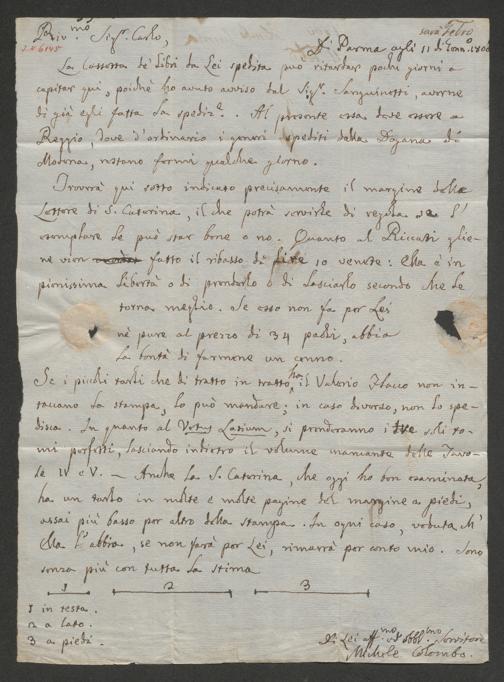 Priv.mo Sig.r Carlo,
Di Parma agli 11 di
La Cassetta de' Libri da Lei spedita può ritardar pochi giorni a
capitar quì, poichè ho avuto avviso dal Sig.r Sanguinetti, averne
di già egli fatta la spediz.e. Al presente essa dee essere a
Reggio, dove d'ordinario i generi spediti dalla Dogana di
Modena, restano fermi qualche giorno.
Troverà qui sotto indicato precisamente il margine delle
Lettere di S. Caterina, il che potrà servirle di regola se l'
esemplare le può star bene o no. Quanto al Riccati glie-
ne vien fatto il ribasso di lire 10 venete: Ella è in
pienissima libertà o di prenderlo o di lasciarlo secondo che le
torna meglio. Se esso non fa per Lei
nè pure al prezzo di 34 paoli, abbia
la bontà di farmene un cenno.
Se i piccoli tarli che di tratto in tratto ha il Valerio Flacco non in-
taccano la stampa, lo può mandare; in caso diverso, non lo spe-
disca. In quanto al Vetus Latium, si prenderanno i tre soli to-
mi perfetti, lasciando indietro il volume mancante delle Tavo-
le IV e V. — Anche la S. Caterina, che oggi ho ben esaminata,
ha un tarlo in molte e molte pagine del margine a piedi,
assai più basso per altro della stampa. In ogni caso, veduta ch'
Ella l'abbia, se non farà per Lei, rimarrà per conto mio. Sono
senza più con tutta la stima
1 2 3
1 in testa.
2 a lato.
3 a piedi.
Di Lei aff.mo ed obbl.mo Servitore
Michele Colombo.